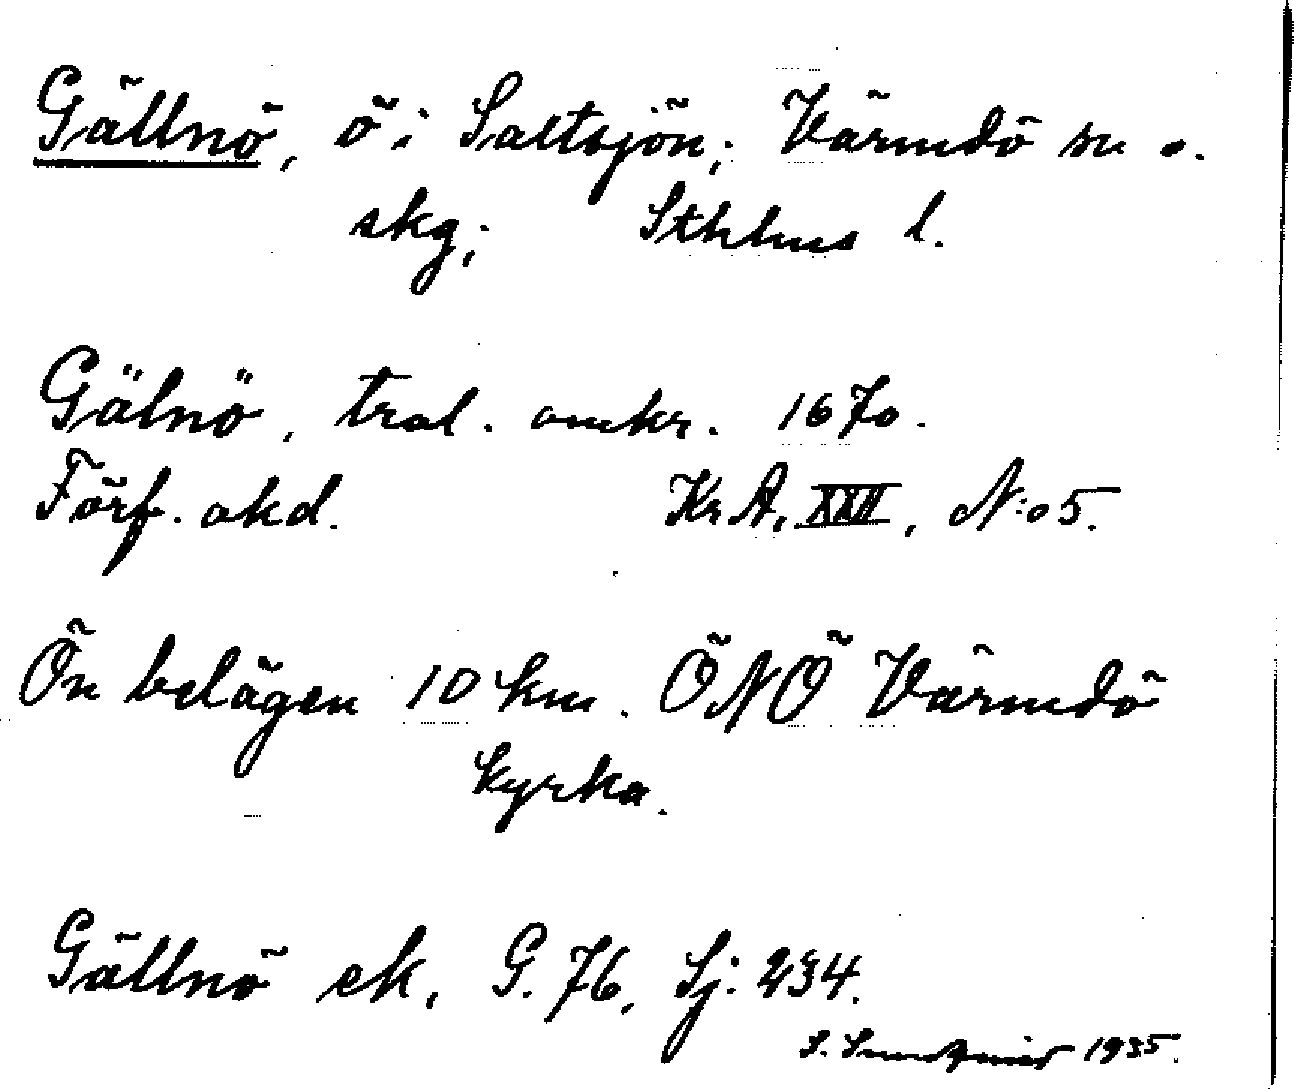 Gällnö, ö i Saltsjön; Värmdö sn o.
skg; Sthlms l.
Gälnö, tral. omkr. 1670.
Förf. okd. Kr A, XXII, N:o 5.
Ön belägen 10 km. ÖNÖ Värmdö
kyrka.
Gällnö ek, G. 76, Sj: 234.
S. 1935.